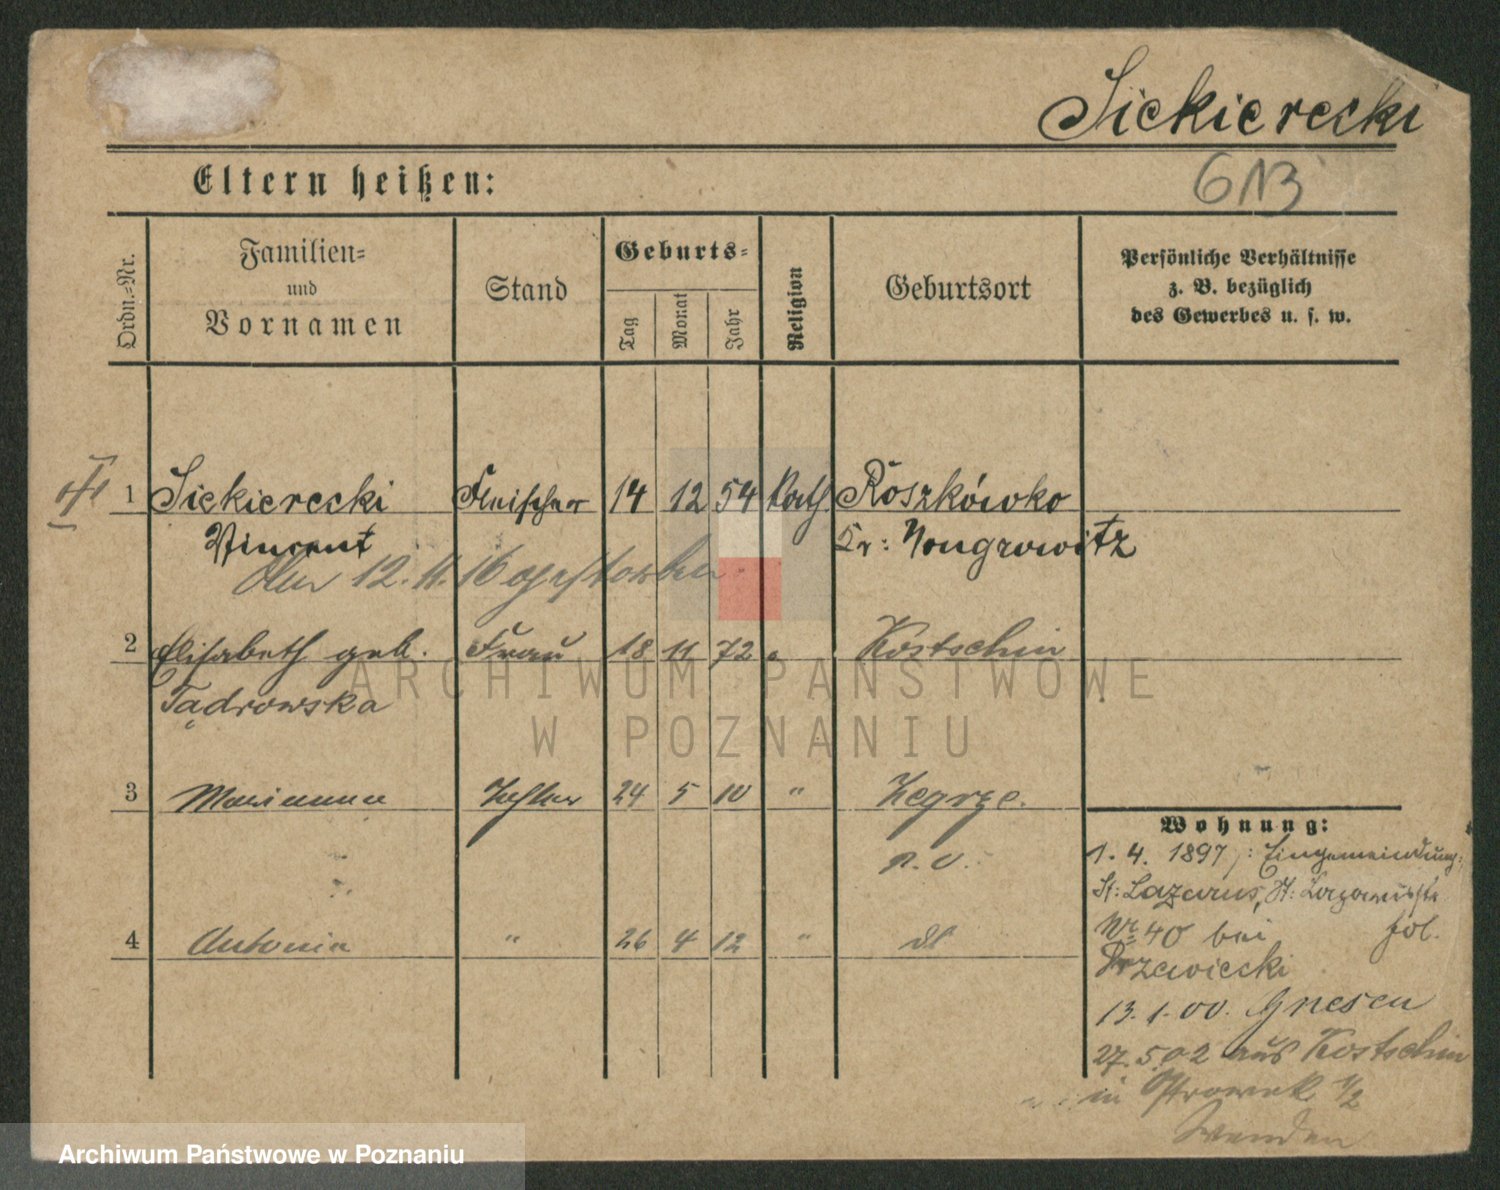 Siekierecki
613
Eltern heißen:
Ordn.-Nr.
Familien-
und
Vornamen
Stand
Geburts-
Tag
Monat
Jahr
Religion
Geburtsort
Persönliche Verhältnisse
z. B. bezüglich
des Gewerbes u. s. w.
1 Siekierecki Fleischer 14 12 54 Kath Roszkówko
Vincent Kr: Wongrowitz
den 12. 11. 16 gestorben
2 Elisabeth geb. Frau 18 11 72 " Kostschin
Tądrowska
3 Marianna Tochter 24 5 10 " Zegrze.
n. O.
4 Antonia " 26 4 12 " dt
Wohnung:
1. 4. 1897, : Eingemeindung:
St: Lazarus, St:
Nr 40 bei fol.
Przewiecki
13. 1. 00. Gnesen
27. 5. 02 aus Kostschin
in Ostrowek 1/2
ARCHIWUM PAŃSTWOWE
W POZNANIU
Archiwum Państwowe w Poznaniu